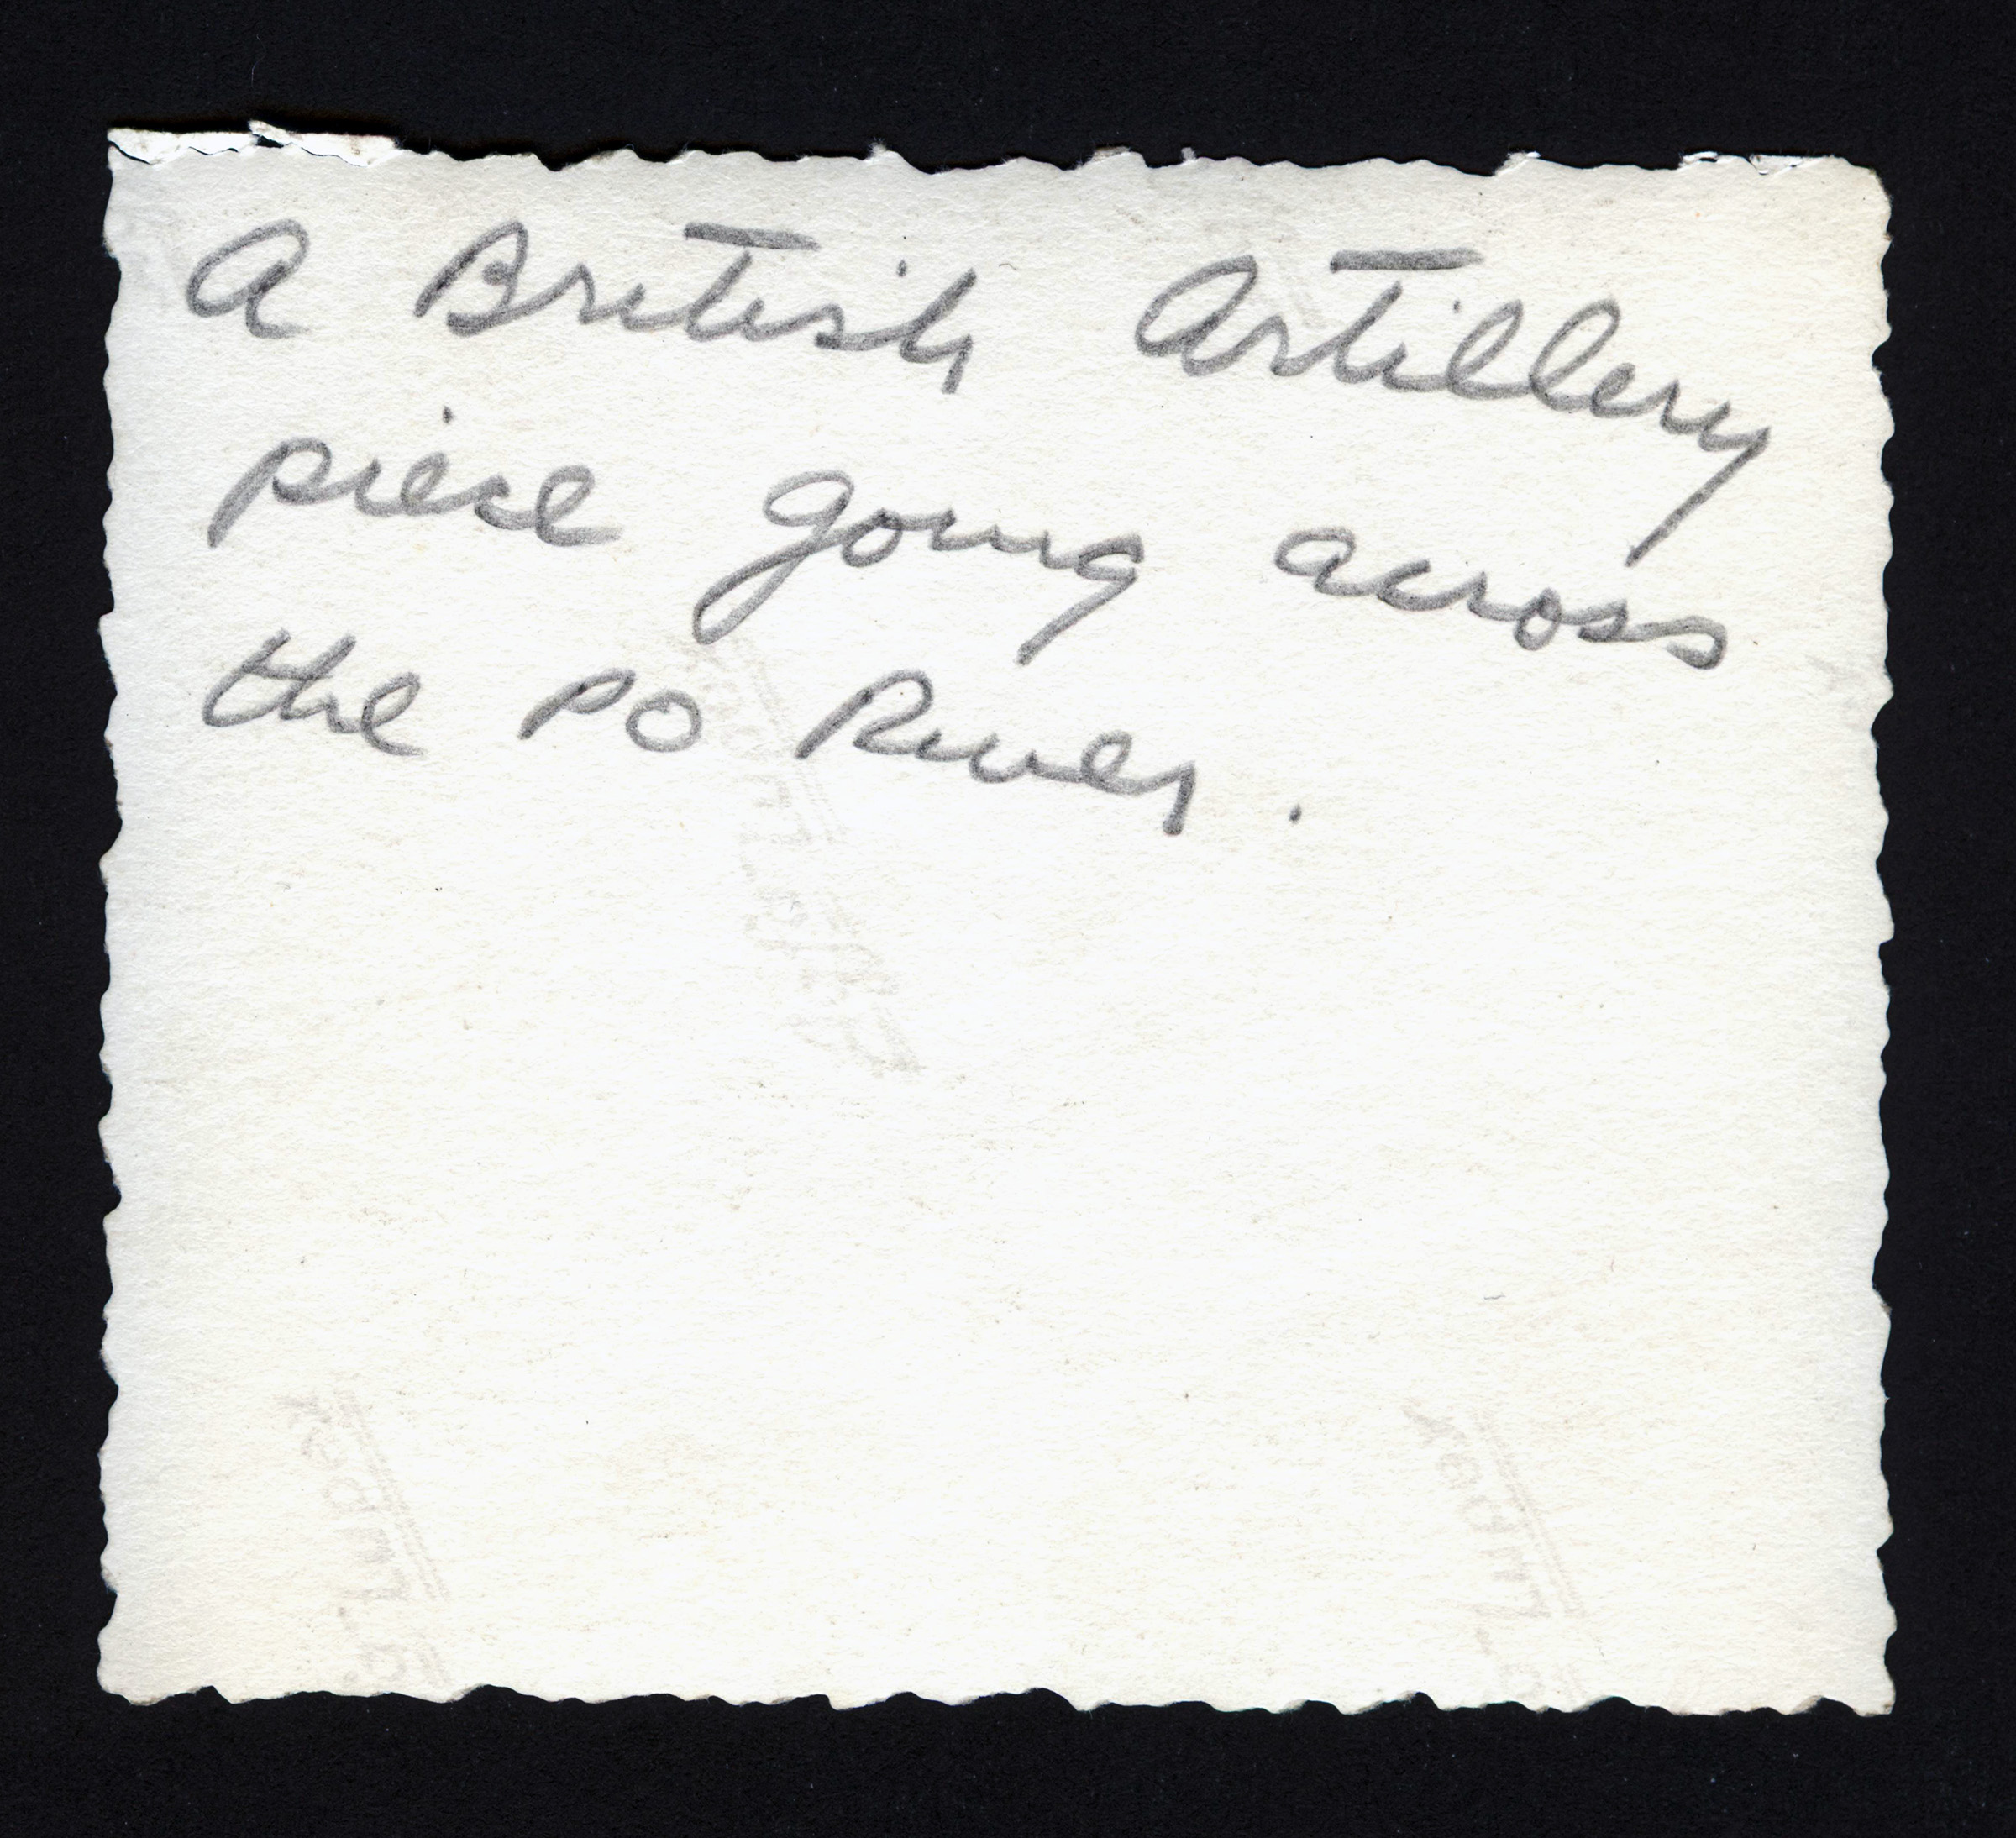 A British Artillery
piece going across
the PO River.